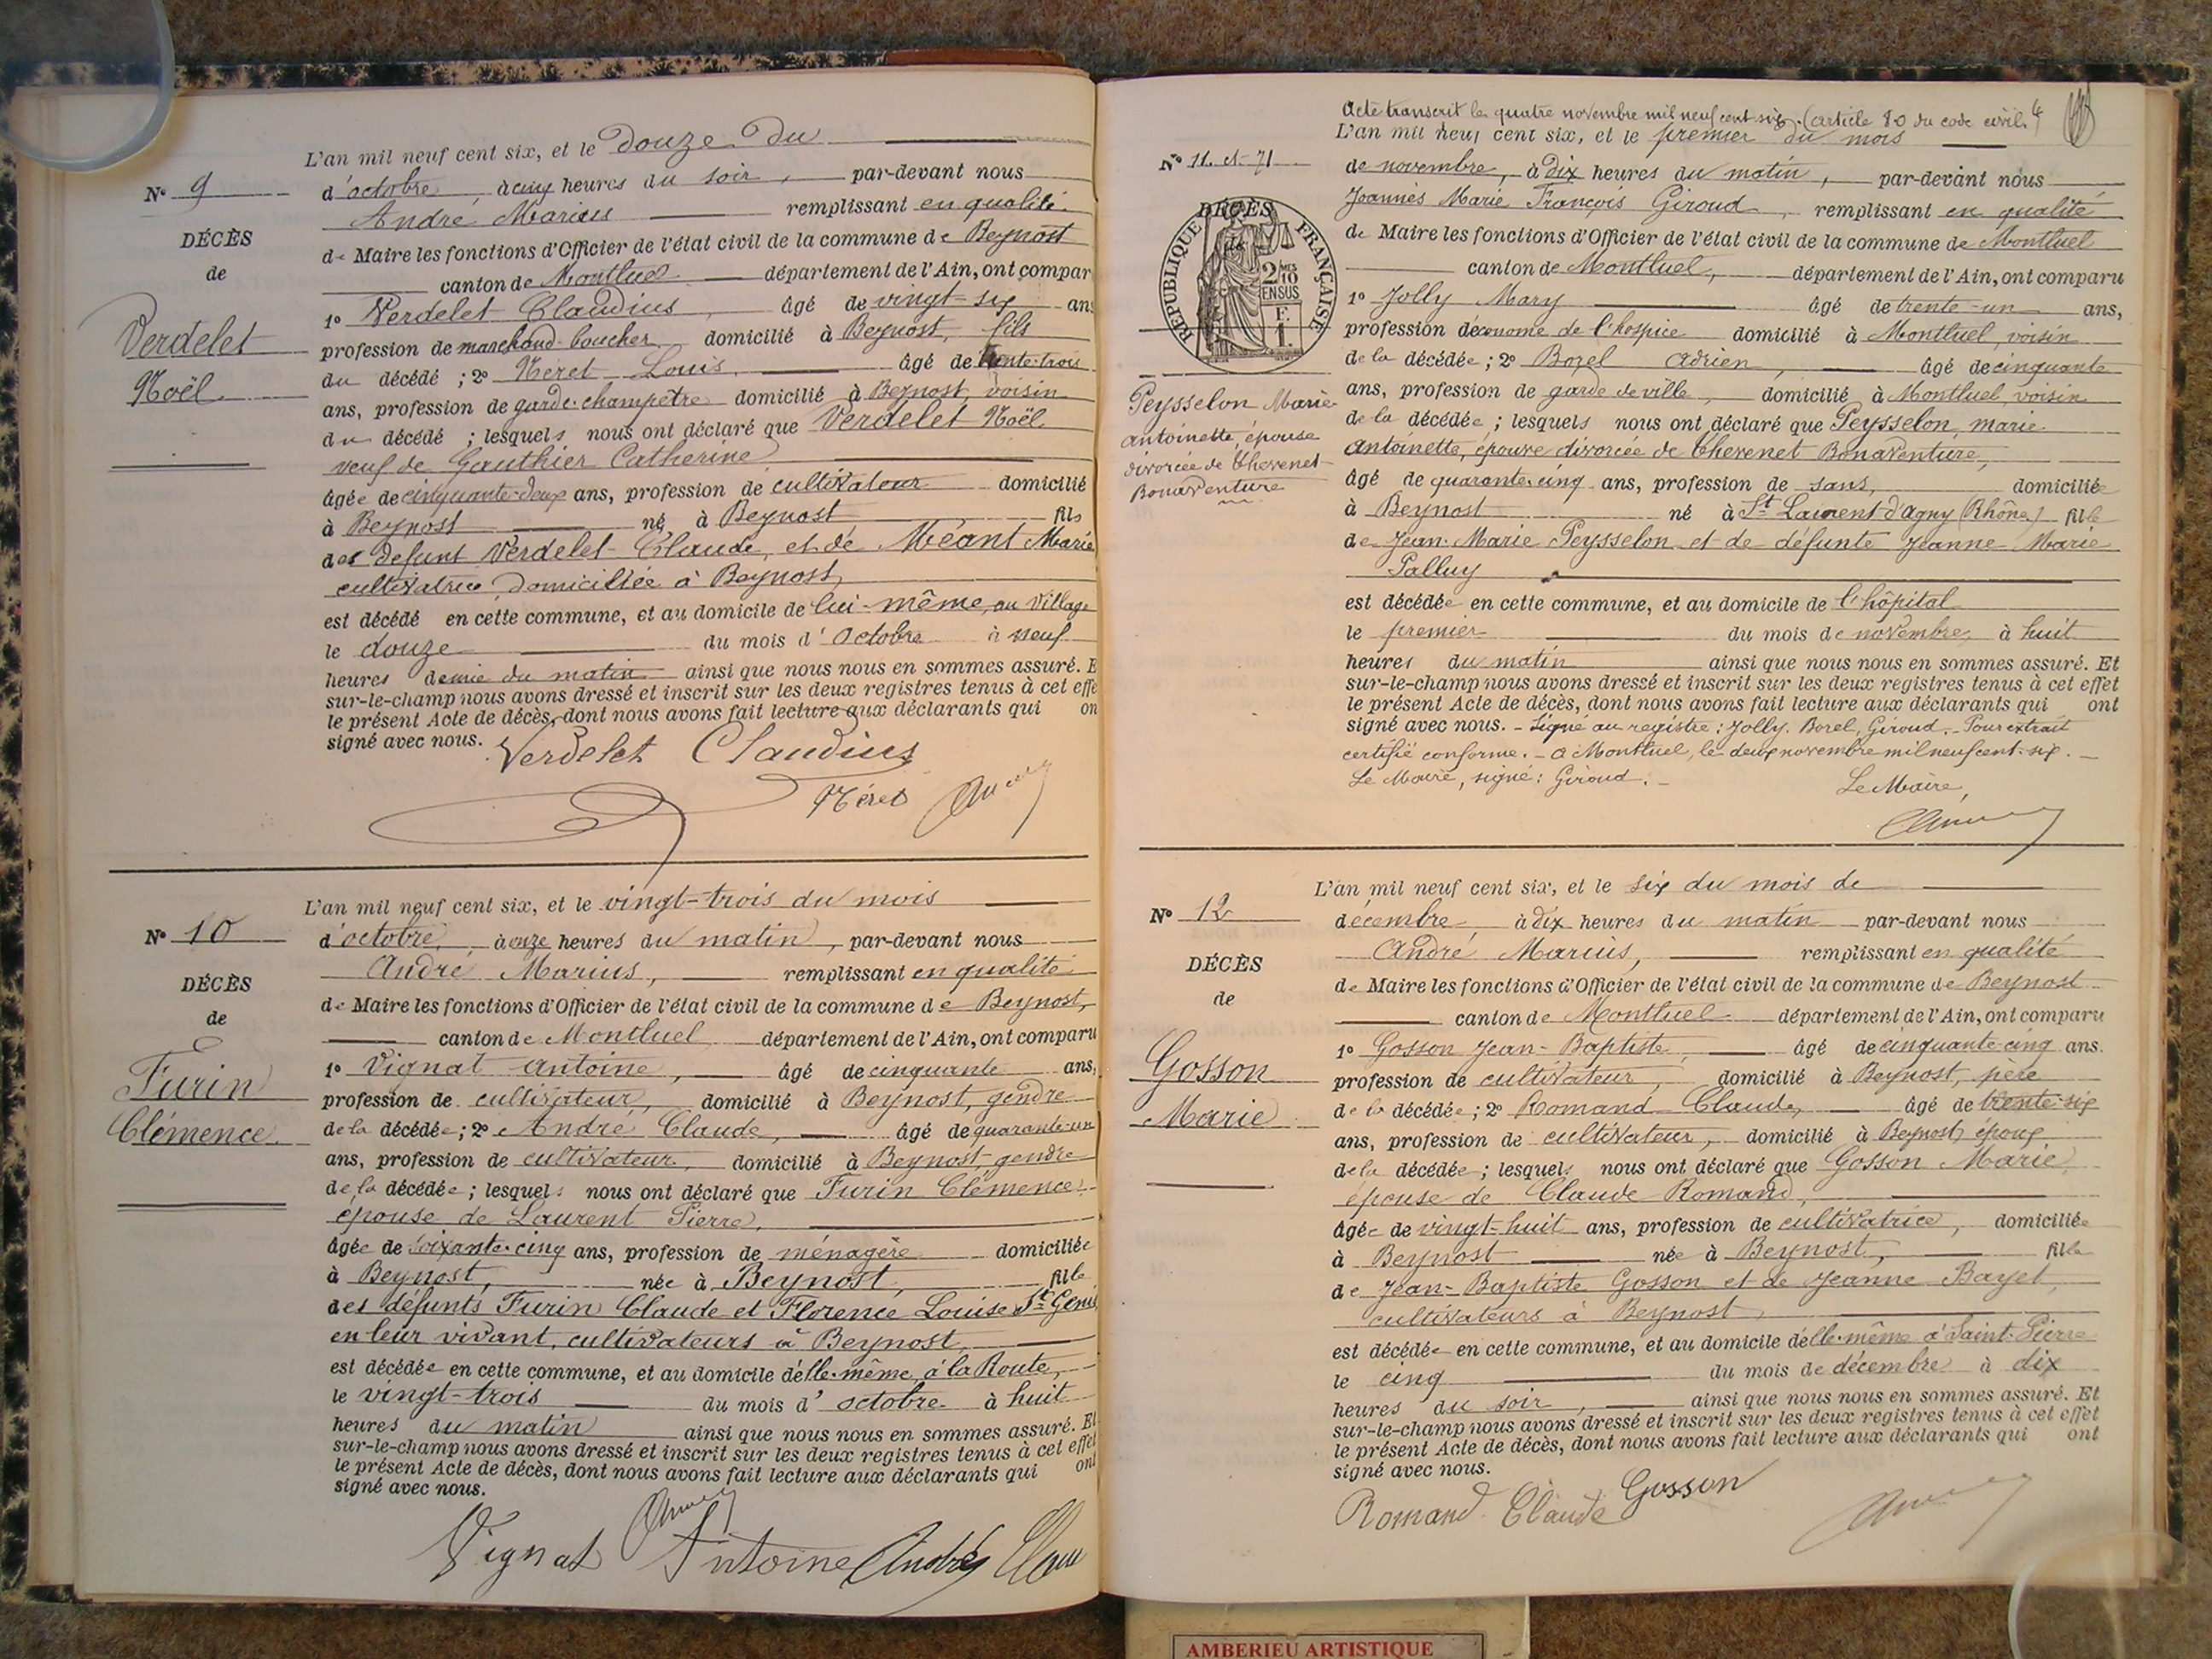 L'an mil neuf cent six, et le douze du
N° 9
d'octobre, à cinq heures du soir, par-devant nous
André Marius remplissant en qualité
DÉCÈS
de Maire les fonctions d'Officier de l'état civil de la commune de Beynost
de
canton de Montluel département de l'Ain, ont compar
1° Verdelet Claudius, âgé de vingt-six ans
Verdelet
profession de marchand-boucher domicilié à Beynost, fils
du décédé ; 2° Néret Louis, âgé de trente-trois
Noël
ans, profession de garde-champêtre domicilié à Beynost, voisin
du décédé ; lesquels nous ont déclaré que Verdelet Noël
veuf de Gauthier Catherine
âgée de cinquante-deux ans, profession de cultivateur domicilié
à Beynost né à Beynost fils
des défunt Verdelet Claude, et de Méant Marie
cultivatrice, domiciliée à Beynost,
est décédé en cette commune, et au domicile de lui-même, au Village
le douze du mois d'octobre à neuf
heures demie du matin ainsi que nous nous en sommes assuré. E
sur-le-champ nous avons dressé et inscrit sur les deux registres tenus à cet effe
le présent Acte de décès, dont nous avons fait lecture aux déclarants qui on
signé avec nous.
Verdelet Claudius
Néret
L'an mil neuf cent six, et le vingt-trois du mois
N° 10
d'octobre, à onze heures du matin, par-devant nous
André Marius, remplissant en qualité
DÉCÈS
de Maire les fonctions d'Officier de l'état civil de la commune de Beynost,
de
canton de Montluel département de l'Ain, ont comparu
1° Vignat Antoine, âgé de cinquante ans,
Furin
profession de cultivateur, domicilié à Beynost, gendre
Clémence
de la décédée ; 2° André Claude, âgé de quarante-un
ans, profession de cultivateur, domicilié à Beynost, gendre
de la décédée ; lesquels nous ont déclaré que Furin Clémence
épouse de Laurent Pierre,
âgée de soixante-cinq ans, profession de ménagère domiciliée
à Beynost, née à Beynost, fille
des défunts Furin Claude et Florence Louise St Genis
en leur vivant, cultivateurs à Beynost,
est décédée en cette commune, et au domicile d'elle-même, à la Route,
le vingt-trois du mois d'octobre à huit
heures du matin ainsi que nous nous en sommes assuré. Et
sur-le-champ nous avons dressé et inscrit sur les deux registres tenus à cet effet
le présent Acte de décès, dont nous avons fait lecture aux déclarants qui ont
signé avec nous.
Vignat Antoine André Clau
Acte transcrit le quatre novembre mil neuf cent six. (article 80 du code civil)
L'an mil neuf cent six, et le premier du mois
N° 11. et 71
de novembre, à dix heures du matin, par-devant nous
Joannès Marie François Giroud, remplissant en qualité
DÉCÈS
RÉPUBLIQUE FRANÇAISE
2/10 MES
EN SUS
F.
1.
de Maire les fonctions d'Officier de l'état civil de la commune de Montluel
canton de Montluel, département de l'Ain, ont comparu
1° Jolly Mary âgé de trente-un ans,
profession d'économe de l'hospice domicilié à Montluel, voisin
de la décédée ; 2° Borel Adrien, âgé de cinquante
ans, profession de garde de ville, domicilié à Montluel, voisin
Peysselon Marie
antoinette, épouse
divorcée de Chevenet
Bonaventure
de la décédée ; lesquels nous ont déclaré que Peysselon, marie
Antoinette, épouse divorcée de Chevenet Bonaventure,
âgé de quarante-cinq ans, profession de sans, domiciliée
à Beynost né à St Laurent d'Agny (Rhône) fille
de Jean-Marie Peysselon et de défunte Jeanne-Marie
Palluy
est décédée en cette commune, et au domicile de l'hôpital
le premier du mois de novembre, à huit
heures du matin ainsi que nous nous en sommes assuré. Et
sur-le-champ nous avons dressé et inscrit sur les deux registres tenus à cet effet
le présent Acte de décès, dont nous avons fait lecture aux déclarants qui ont
signé avec nous. - Signé au registre : Jolly, Borel, Giroud. - Pour extrait
certifié conforme. - A Montluel, le deux novembre mil neuf cent six. -
Le Maire, signé : Giroud. -
Le Maire,
L'an mil neuf cent six, et le six du mois de
N° 12
décembre, à dix heures du matin par-devant nous
André Marius, remplissant en qualité
DÉCÈS
de Maire les fonctions d'Officier de l'état civil de la commune de Beynost
de
canton de Montluel département de l'Ain, ont comparu
1° Gosson Jean-Baptiste, âgé de cinquante-cinq ans.
Gosson
profession de cultivateur, domicilié à Beynost, père
de la décédée ; 2° Romand Claude, âgé de trente-six
Marie
ans, profession de cultivateur, domicilié à Beynost, époux
de la décédée ; lesquels nous ont déclaré que Gosson Marie
épouse de Claude Romand,
âgée de vingt-huit ans, profession de cultivatrice, domiciliée
à Beynost née à Beynost, fille
de Jean-Baptiste Gosson et de Jeanne Bayet,
cultivateurs à Beynost,
est décédée en cette commune, et au domicile d'elle-même à Saint-Pierre
le cinq du mois de décembre à dix
heures du soir, ainsi que nous nous en sommes assuré. Et
sur-le-champ nous avons dressé et inscrit sur les deux registres tenus à cet effet
le présent Acte de décès, dont nous avons fait lecture aux déclarants qui ont
signé avec nous.
Romand Claude Gosson
AMBERIEU ARTISTIQUE